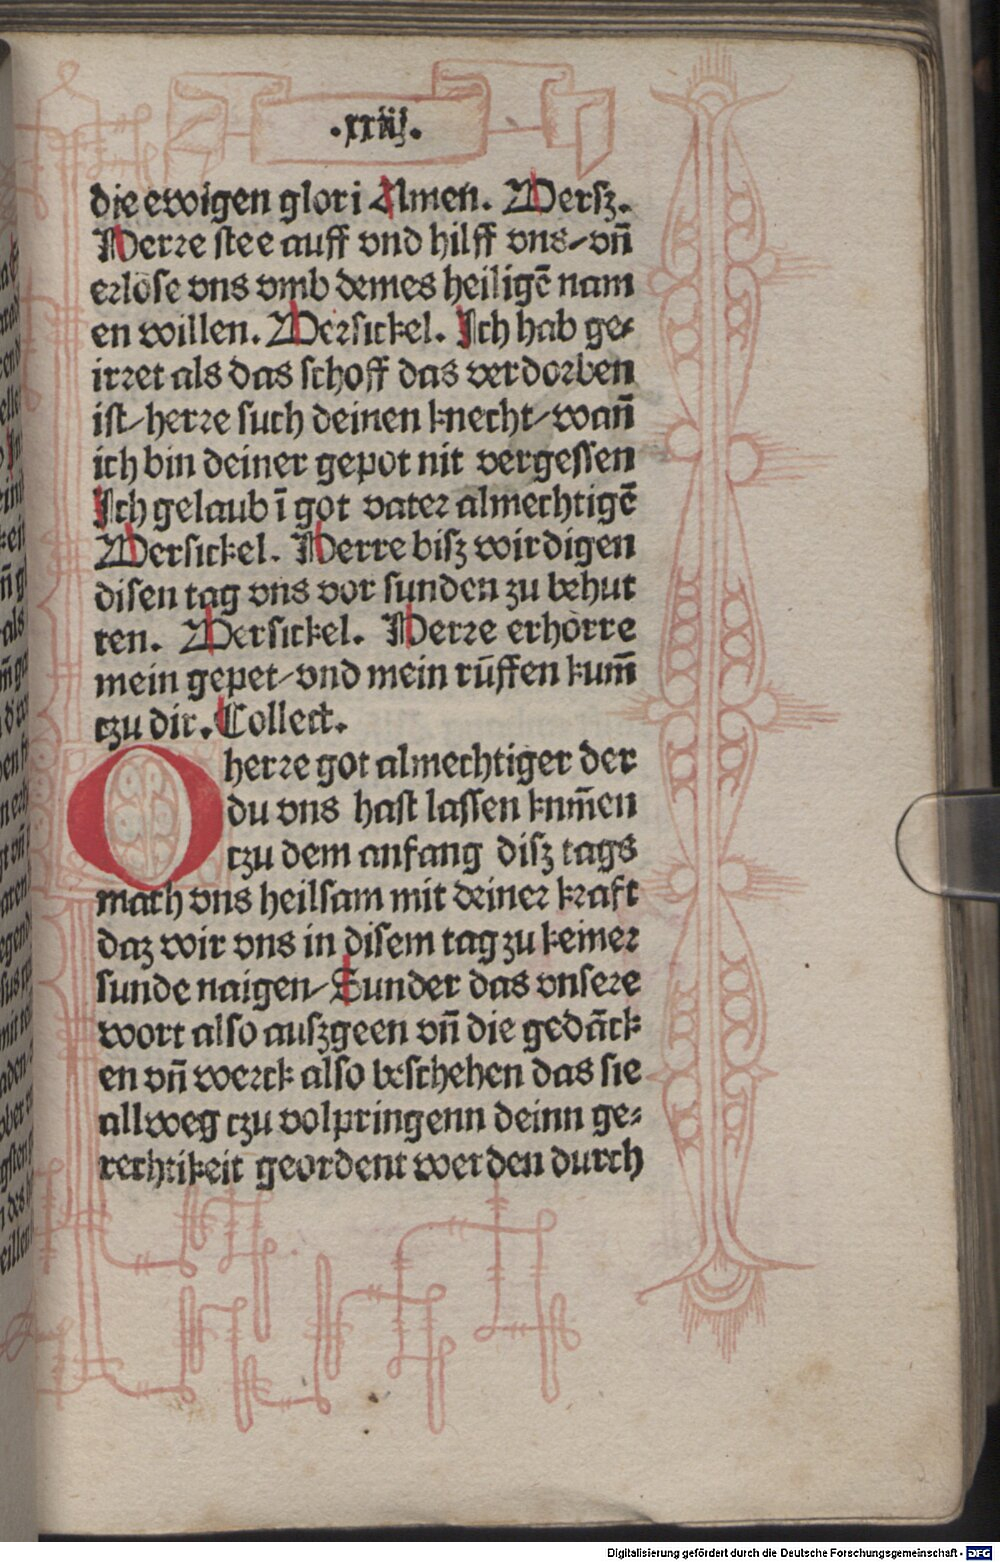 .xxiij.
die ewigen glori Amen. Versz.
Herre stee auff vnd hilff vns/ vn̄
erlöse vns vmb deines heiligē nam
en willen. Versickel. Ich hab ge⸗
irret als das schoff das verdorben
ist/ herre such deinen knecht/ wañ
ich bin deiner gepot nit vergessen
Ich gelaub ī got vater almechtigē
Versickel. Herre bisz wirdigen
disen tag vns vor sunden zu behut
ten. Versickel. Herre erhörre
mein gepet/ vnd mein rüffen kum̄
czu dir. Collect.
O herre got almechtiger der
du vns hast lassen knm̄en
czu dem anfang disz tags
mach vns heilsam mit deiner kraft
daz wir vns in disem tag zu keiner
sunde naigen/ Sunder das vnsere
wort also auszgeen vn̄ die gedāck
en vn̄ werck also beschehen das sie
allweg czu volpringenn deinn ge⸗
rechtikeit geordent werden durch
Digitalisierung gefördert durch die Deutsche Forschungsgemeinschaft - DFG